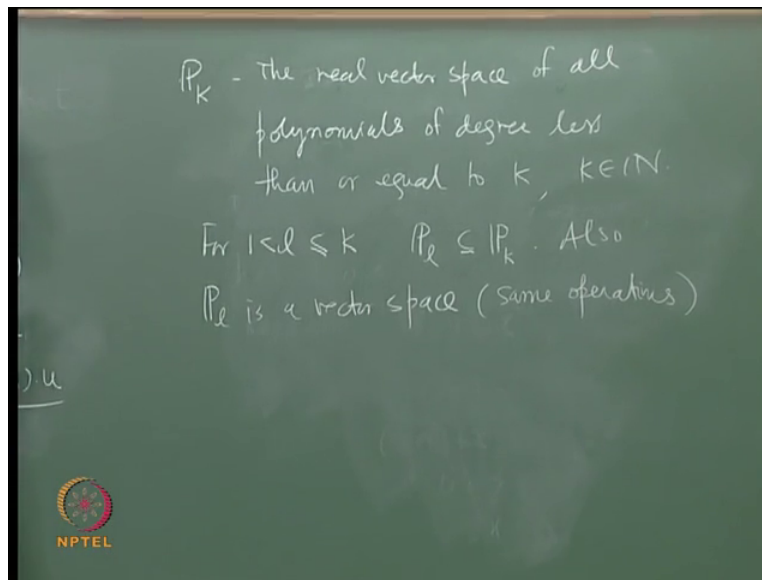 ℙ_K - The real vector space of all
polynomials of degree less
than or equal to K, K∈ℕ.
For 1<l≤K ℙ_l ⊆ ℙ_K. Also
ℙ_l is a vector space (same operations)
).u
NPTEL